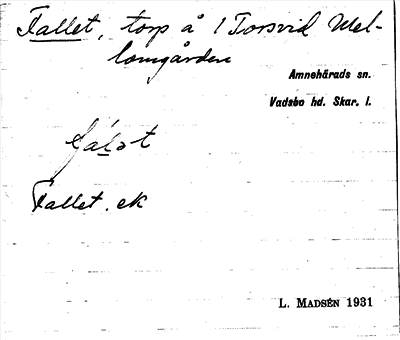 Fallet, torp å 1 Torsvid Mel-
lomgården
Amnehärads sn.
Vadsbo hd. Skar. l.
fàlət
Fallet. ek
L. Madsén 1931